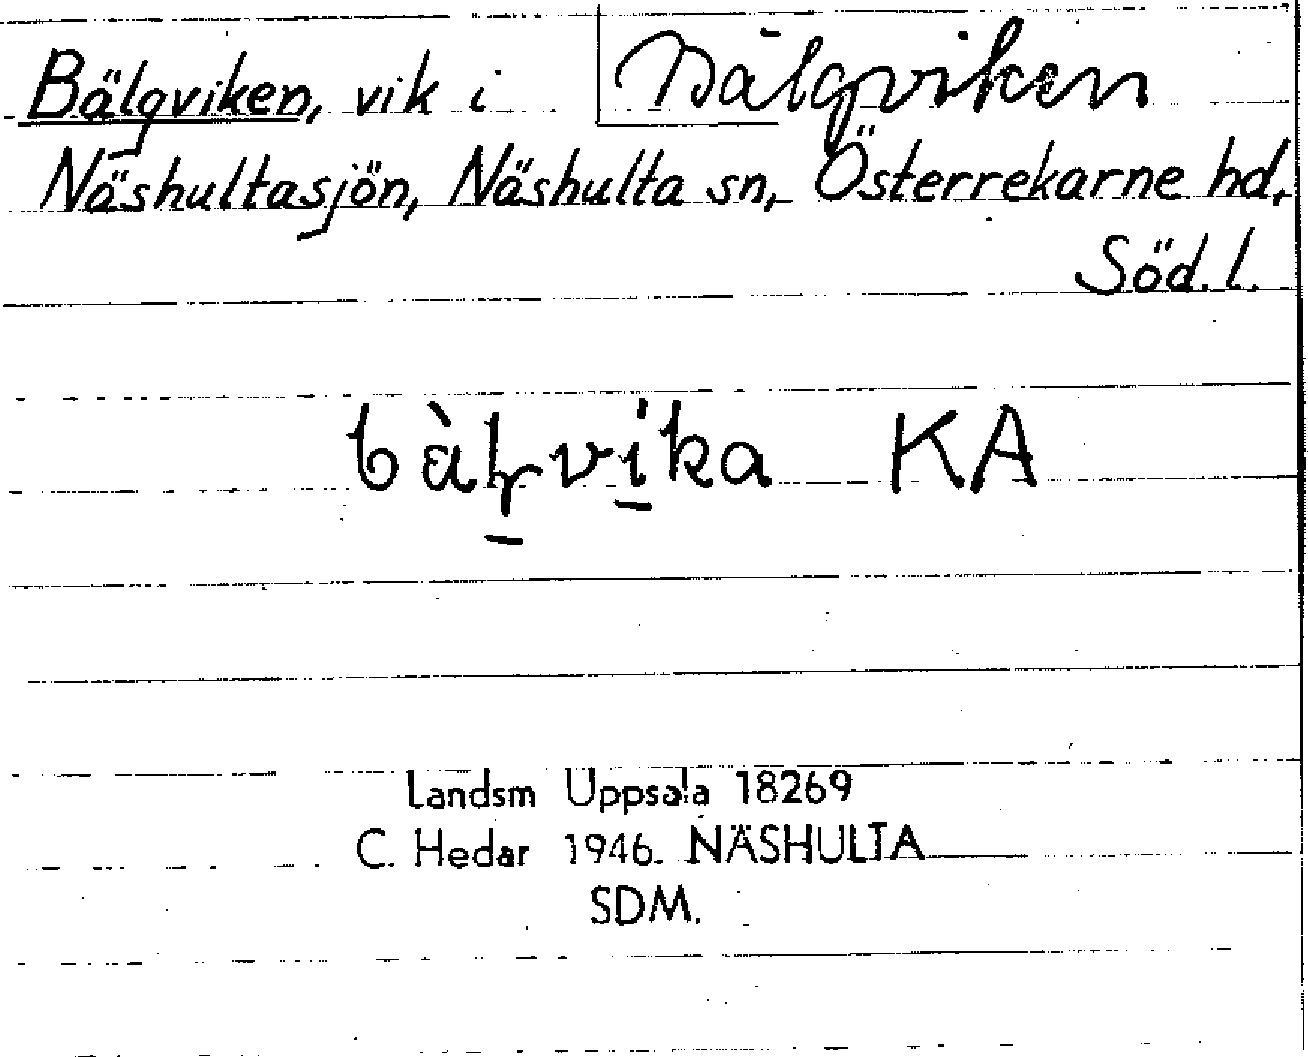 Bälgviken, vik i Bälgviken
Näshultasjön, Näshulta sn, Österrekarne hd,
Söd. l.
KA
Landsm Uppsala 18269
C. Hedar 1946. NÄSHULTA
SDM.